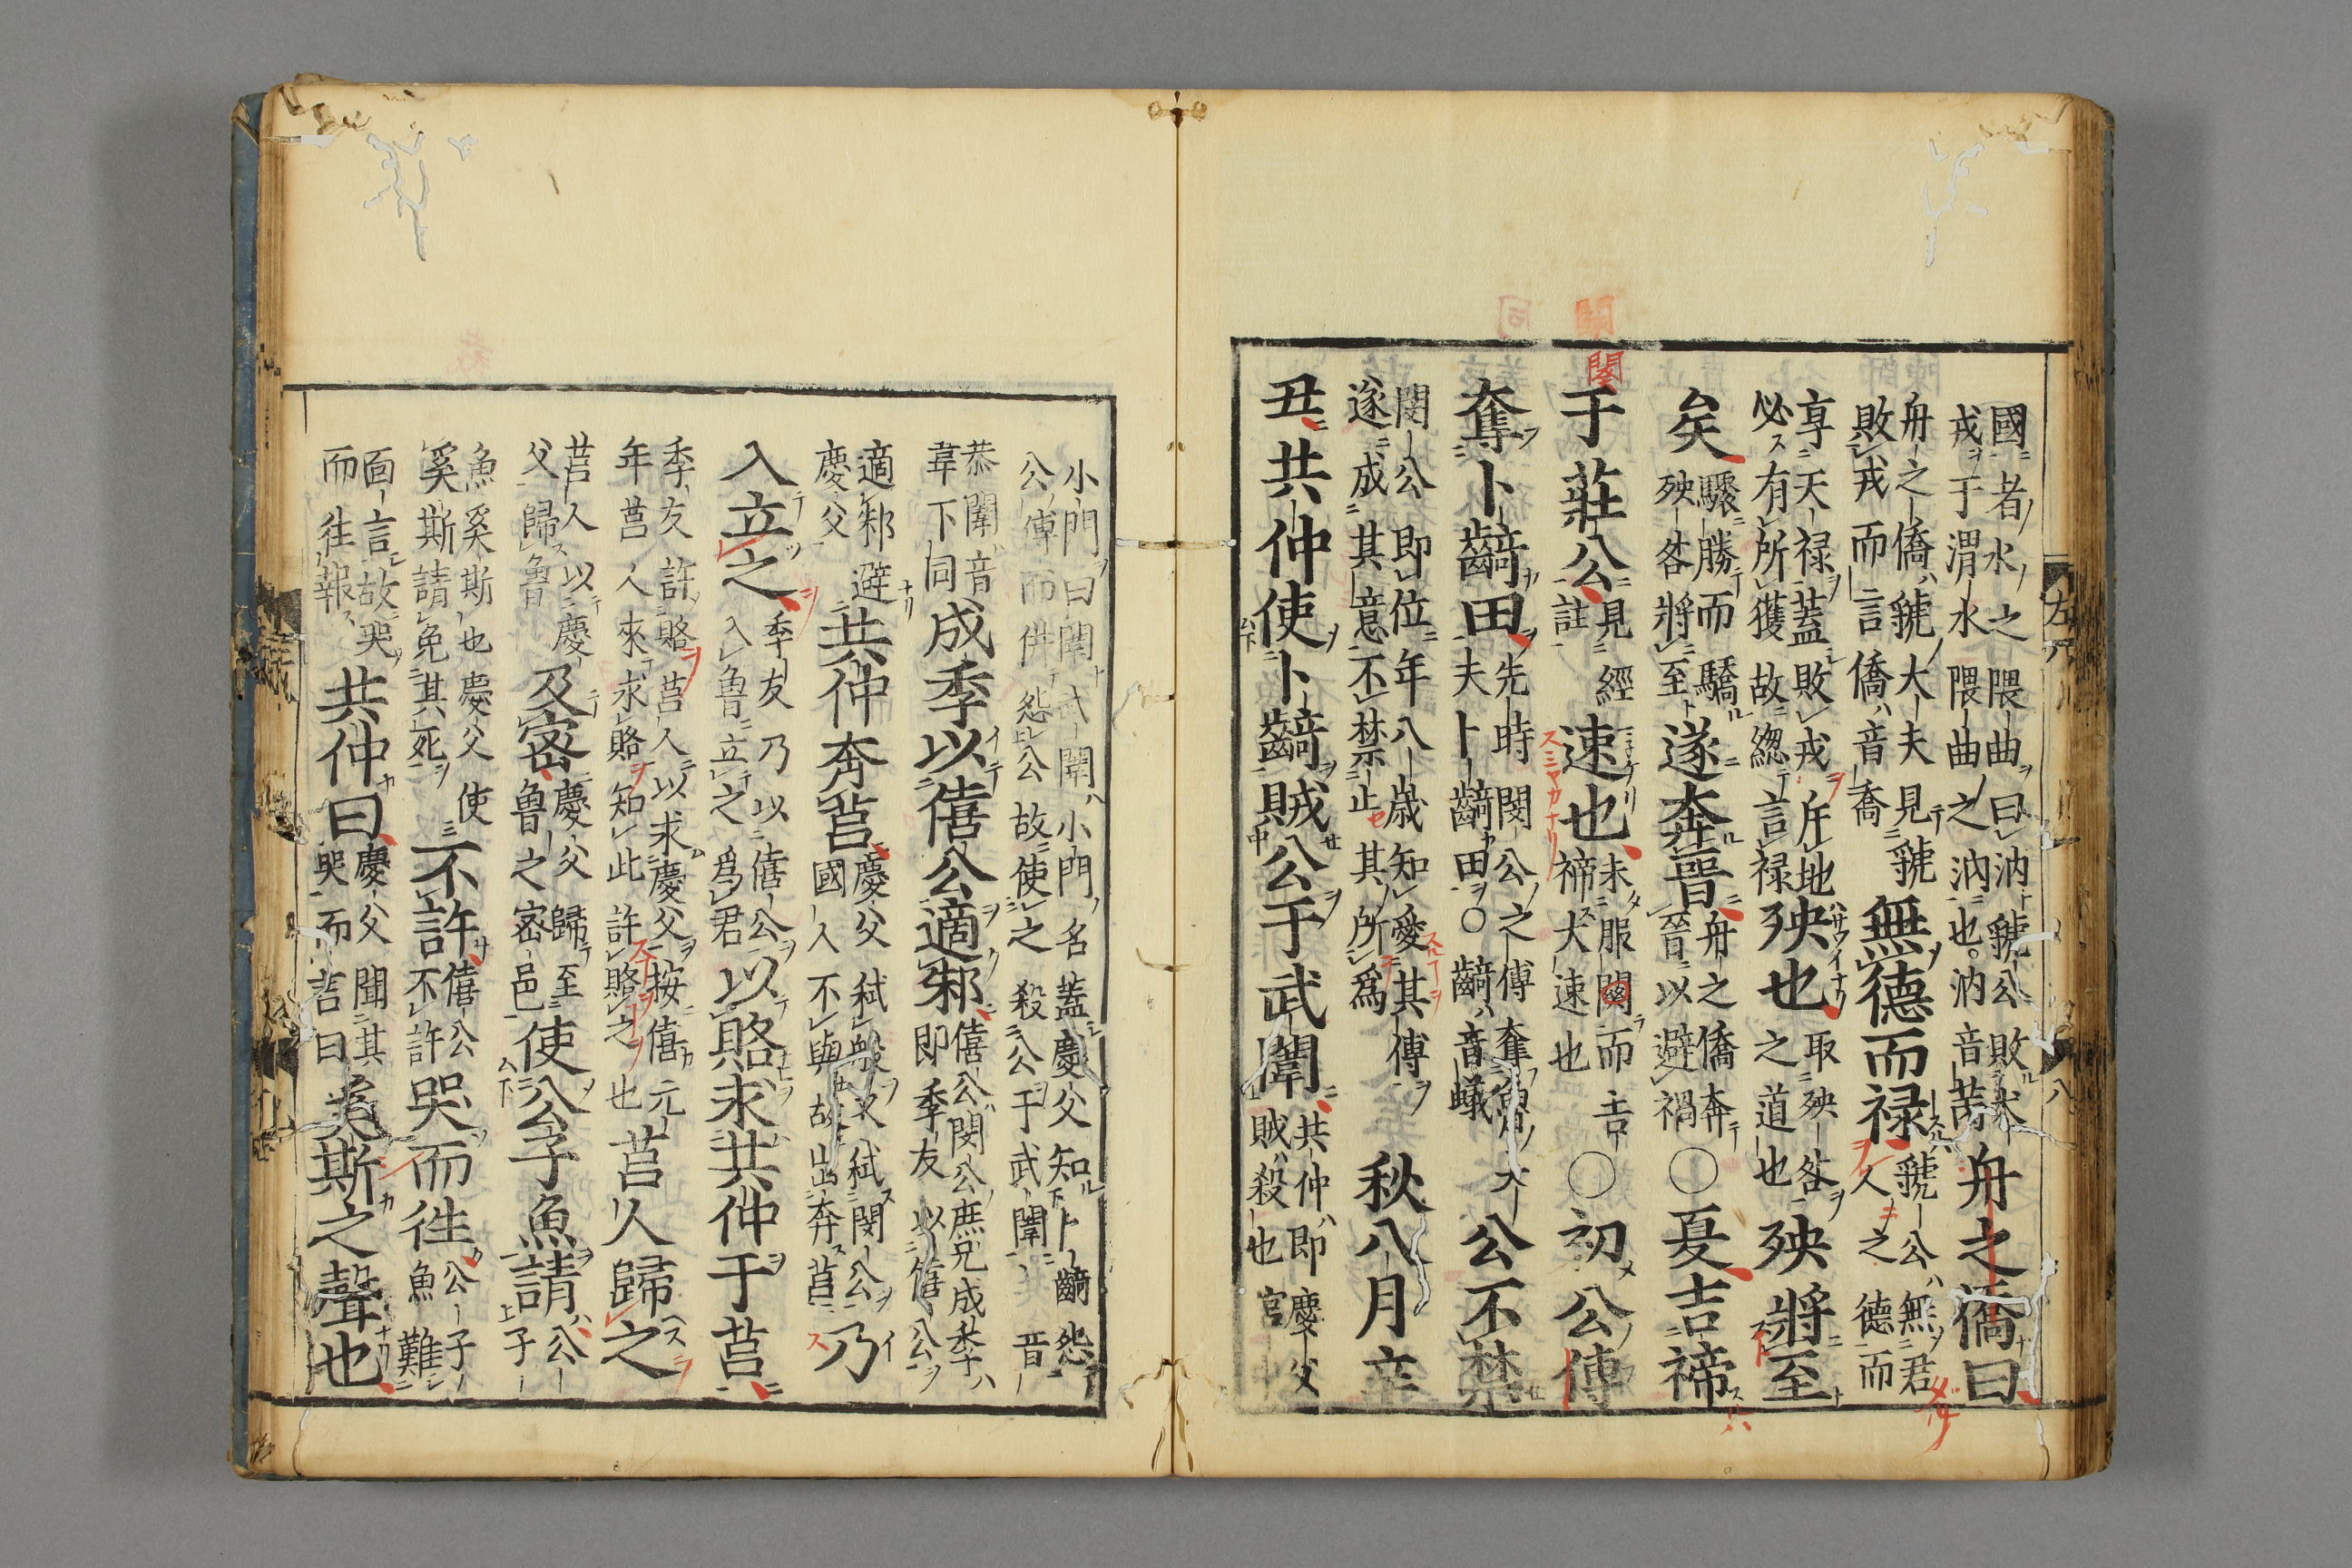 國者水之隈曲曰汭虢公敗犬
戎于渭水隈曲之汭也。汭音芮
舟之僑曰
舟之僑虢大夫見虢
敗戎而言僑音喬
無德而祿
虢公無君
人之德而
享天祿蓋敗戎斥地
必有所獲故緫言祿
殃也
取殃咎
之道也
殃將至
矣
驟勝而驕
殃咎將至
遂奔晉
舟之僑奔
晉以避禍
○夏吉禘
于莊公
見經
註
速也
未服闋而吉
禘大速也
○初公傅
奪卜齮田
先時閔公之傅奪魯大
夫卜齮田○齮音蟻
公不禁
閔公即位年八歳知愛其傅
遂成其意不禁止其所為
秋八月辛
丑共仲使卜齮賊公于武闈
共仲即慶父
賊殺也宫
小門曰闈武闈小門名蓋慶父知卜齮怨
公傅而併怨公故使之殺公于武闈音
恭闈音
韋下同
成季以僖公適邾
僖公閔公庶兄成季
即季友以僖公
適邾避
慶父
共仲奔莒
慶父弑般又弑閔公
國人不與故出奔莒
乃
入立之
季友乃以僖公
入魯立之爲君
以賂求共仲于莒
季友許賂莒人以求慶父按僖元
年莒人來求賂知此許賂之也
莒人歸之
莒人以慶
父歸魯
及密
慶父歸至
魯之密邑
使公子魚請
公
子
魚奚斯也慶父使
奚斯請免其死
不許
僖公
不許
哭而徃
公子
魚難
面言故哭
而徃報
共仲曰
慶父聞其
哭而言曰
奚斯之聲也